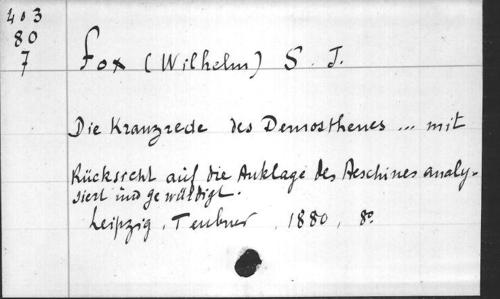 403
80
7
Fox (Wilhelm) S. J.
Die Kranzrede des Demosthenes ... mit
Rücksicht auf die Anklage des Aeschines analy-
siert und gewürdigt.
Leipzig, Teubner, 1880, 8º.